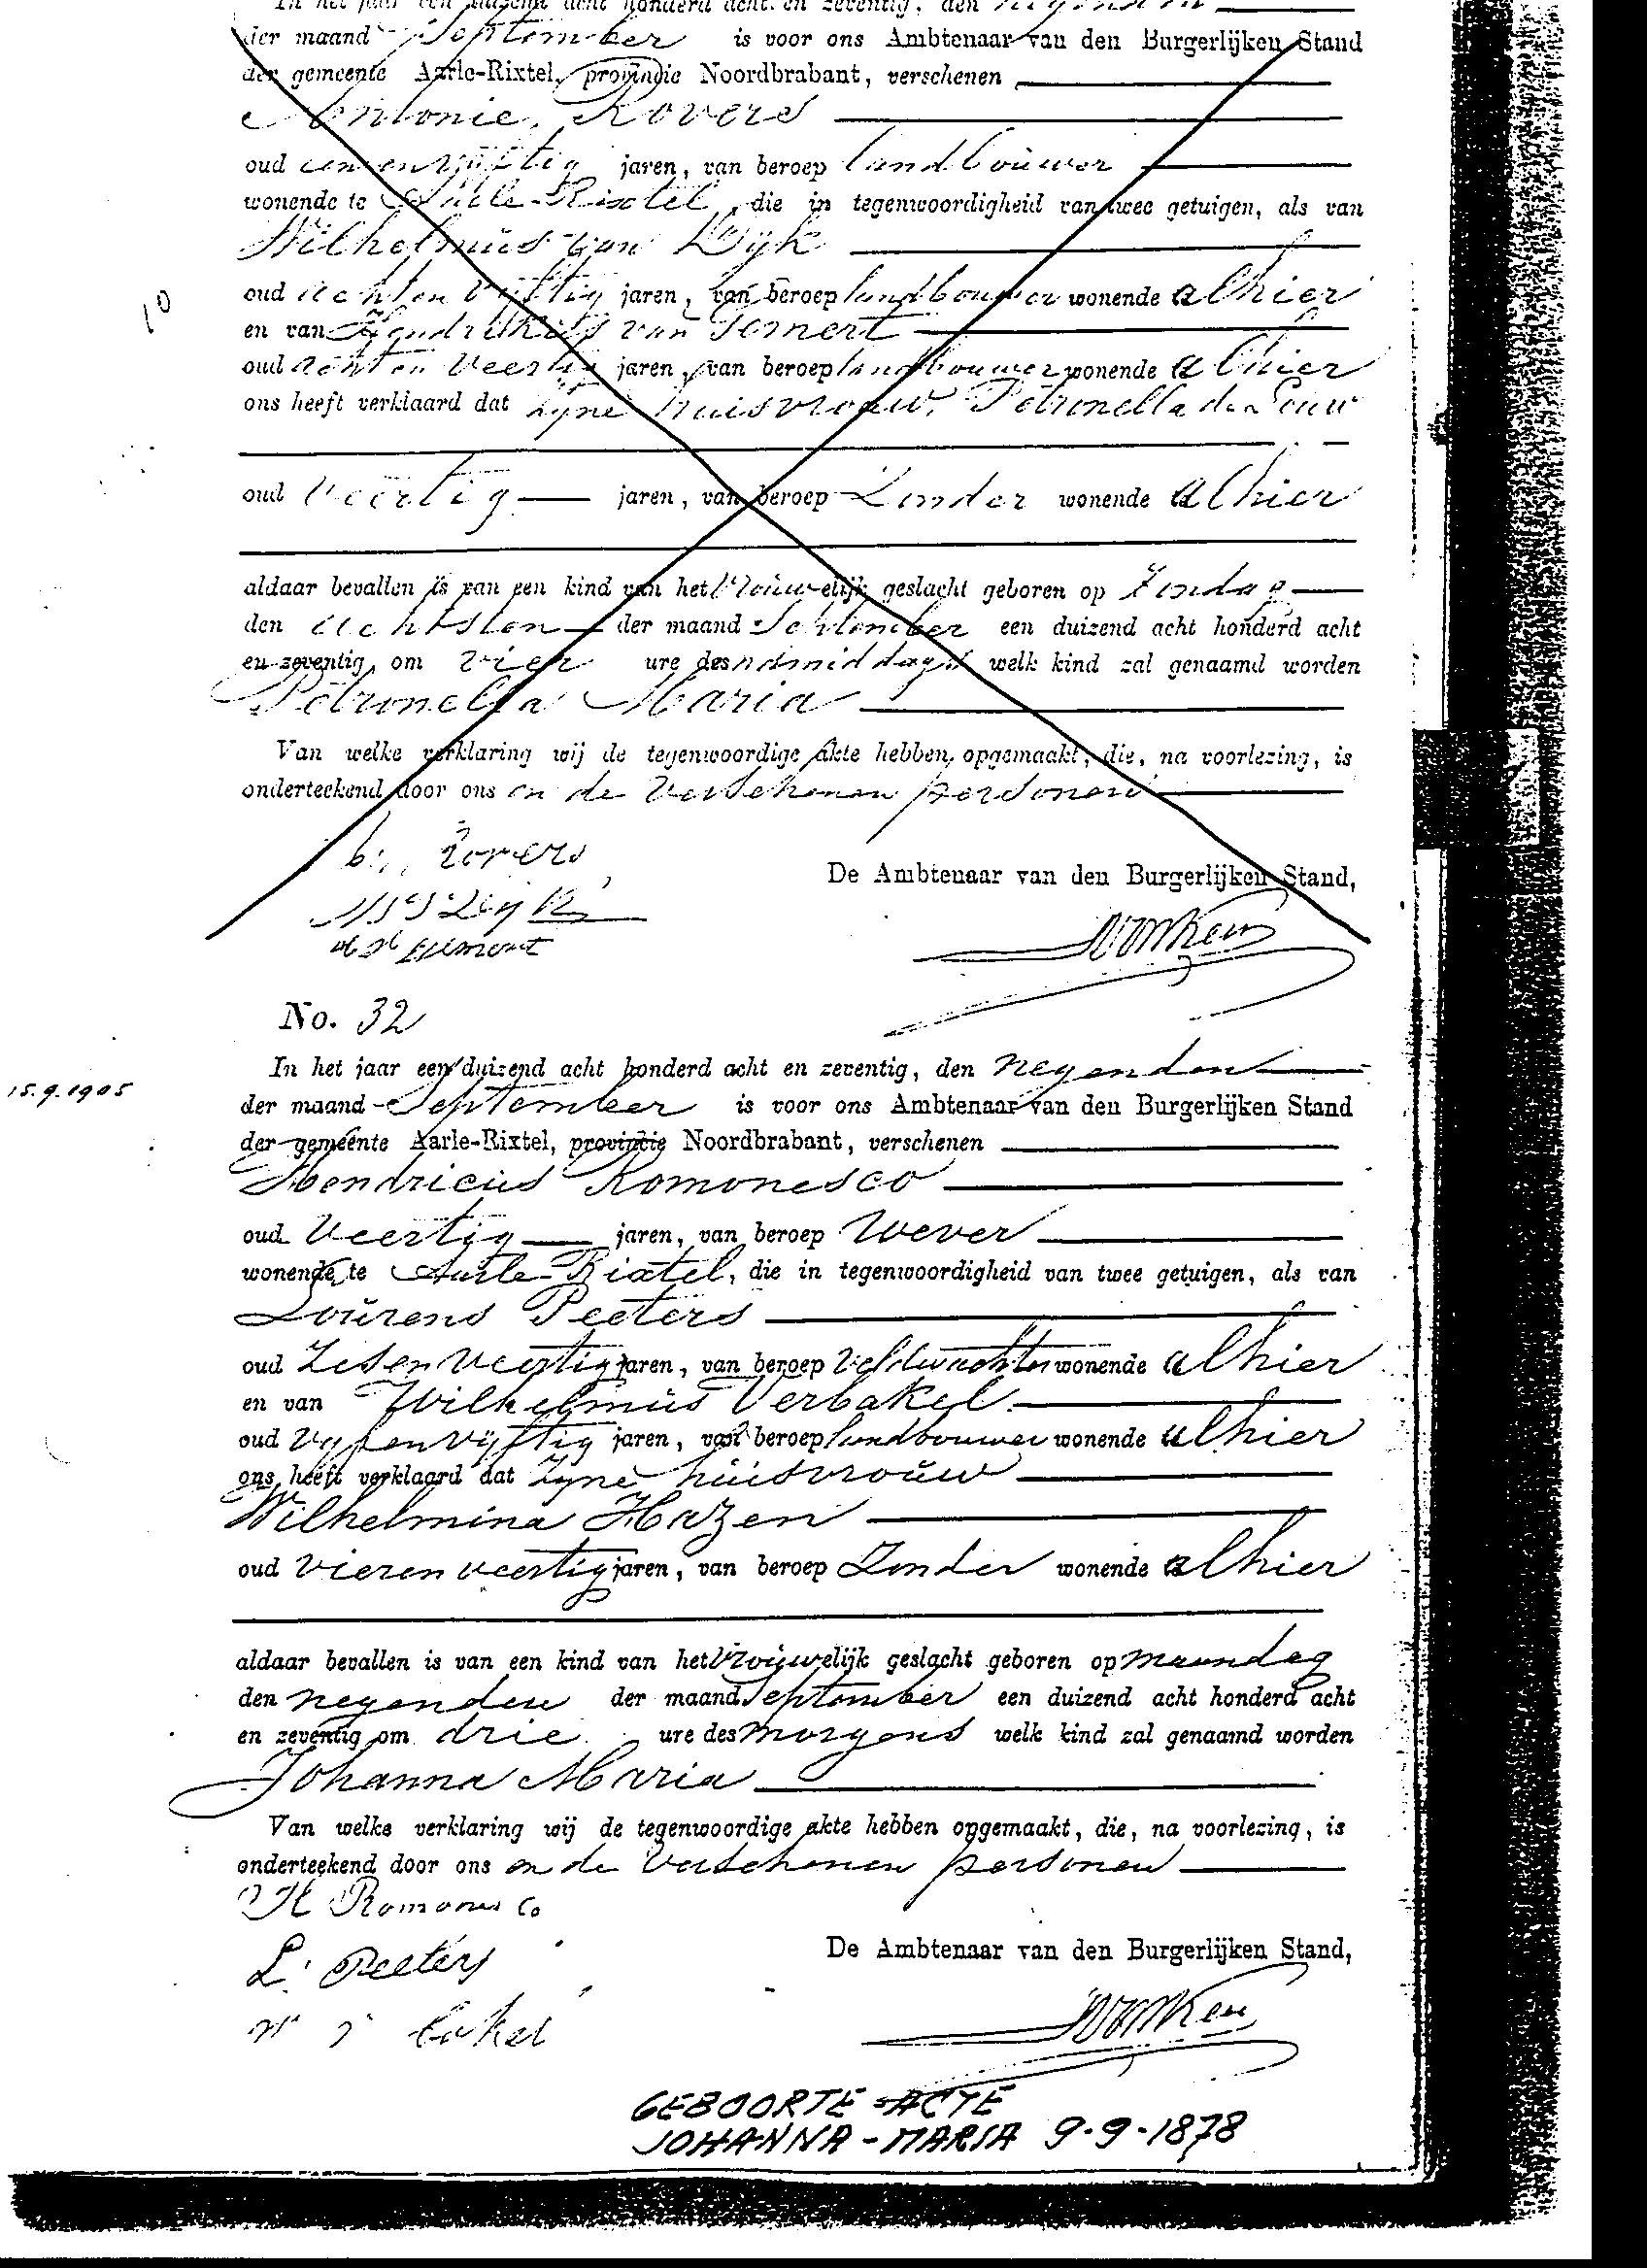 In het jaar een duizend acht honderd acht en zeventig, den negenden
der maand September is voor ons Ambtenaar van den Burgerlijken Stand
der gemeente Aarle-Rixtel, provindie Noordbrabant, verschenen
Antonie Rovers
oud een en vijftig jaren, van beroep landbouwer
wonende te Aarle-Rixtel, die in tegenwoordigheid van twee getuigen, als van
Wilhelmus van Dijk
oud acht en vijftig jaren, van beroep landbouwer wonende alhier
en van Hendrikus van Somert
oud acht en veertig jaren, van beroep landbouwer wonende alhier
ons heeft verklaard dat zijne huisvrouw, Petronella de Louw
oud veertig jaren, van beroep Zonder wonende alhier
aldaar bevallen is van een kind van het vrouwelijk geslacht geboren op Zondag
den achtsten der maand September een duizend acht honderd acht
en zeventig, om vier ure des namiddags welk kind zal genaamd worden
Petronella Maria
Van welke verklaring wij de tegenwoordige akte hebben opgemaakt, die, na voorlezing, is
onderteekend door ons en de verschenen personen
Rovers
De Ambtenaar van den Burgerlijken Stand,
No. 32
15.9.1905
10
In het jaar een duizend acht honderd acht en zeventig, den negenden
der maand September is voor ons Ambtenaar van den Burgerlijken Stand
der gemeente Aarle-Rixtel, provintie Noordbrabant, verschenen
Hendricus Romonesco
oud veertig jaren, van beroep Wever
wonende te Aarle-Rixtel, die in tegenwoordigheid van twee getuigen, als van
Lourens Peeters
oud Zes en veertig jaren, van beroep veldwachter wonende alhier
en van Wilhelmus Verbakel
oud vyf en vyftig jaren, van beroep landbouwer wonende alhier
ons heeft verklaard dat zyne huisvrouw
Wilhelmina Hazen
oud vier en veertig jaren, van beroep Zonder wonende alhier
aldaar bevallen is van een kind van het vrouwelijk geslacht geboren op maandag
den negenden der maand September een duizend acht honderd acht
en zeventig om drie ure des morgens welk kind zal genaamd worden
Johanna Maria
Van welke verklaring wij de tegenwoordige akte hebben opgemaakt, die, na voorlezing, is
onderteekend door ons en de verschenen personen
H Romones Co
De Ambtenaar van den Burgerlijken Stand,
L. Peeters
GEBOORTE-ACTE
JOHANNA-MARIA 9-9-1878